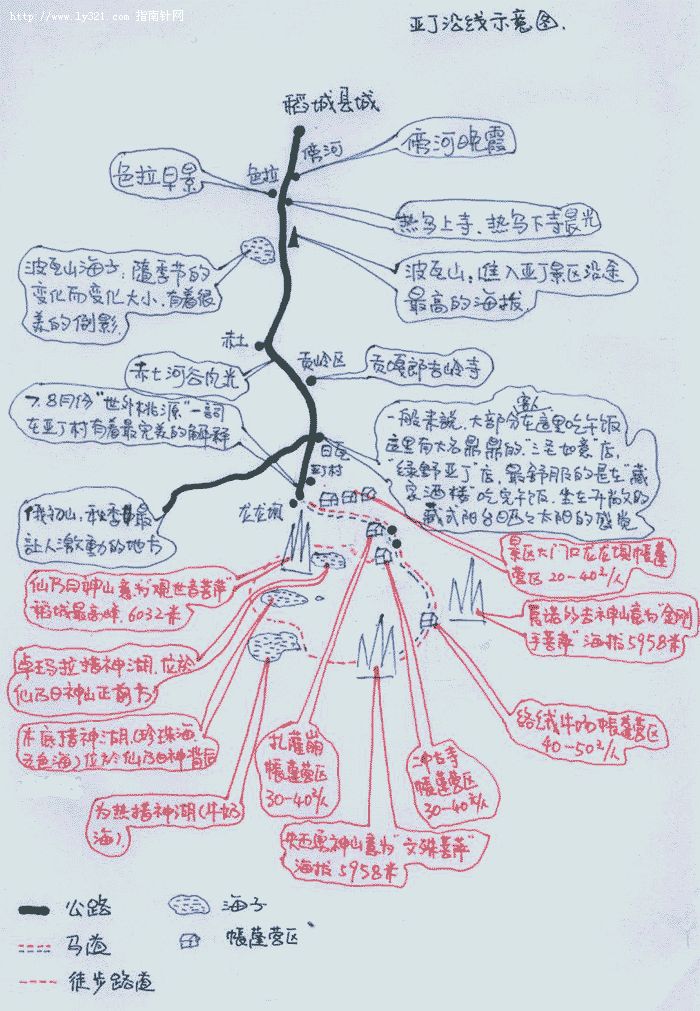 http://www.ly321.com 指南针网
亚丁沿线示意图.
稻城县城
傍河
傍河晚霞
色拉
色拉早景
热乌上寺、热乌下寺晨光
波瓦山海子:随季节的
变化而变化大小、有着很
美的倒影.
波瓦山:進入亚丁景区沿途
最高的海拔.
赤土
赤土河谷肉光
贡岭区
贡嘎郎吉岭寺
7.8月份"世外桃源"一詞
在亚丁村有着最完美的解释
客人
一般来説、大部分在這里吃午饭
這里有大名鼎鼎的"三毛如意"店,
绿野亚丁店,最舒服的是在"藏
家酒楼"吃完午饭,坐在开放的
藏式阳台晒々太阳的感觉
日瓦
亚丁村
龙龙坝
俄初山,秋季最
讓人激動的地方
景区大门口龙龙坝帳蓬
營区20-40元/人
仙乃日神山意为"觀世音菩萨"
稻城最高峰.6032米
夏诺多吉神山意为"金刚
手菩萨"海拔5958米
卓玛拉措神湖.位於
仙乃日神山正前方
洛绒牛场帳蓬营区
40-50元/人
木底措神湖(珍珠海
五色海)位於仙乃日神背后
扎灌崩
帳蓬营区
30-40元/人
冲古寺
帳蓬营区
30-40元/人
为热措神湖(牛奶
海).
央迈勇神山意为"文殊菩萨"
海拔5958米
公路
海子
马道
帳蓬营区
徒步路道